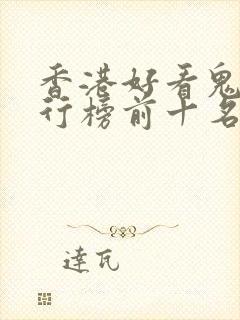 香港好看鬼
行榜前十名
達瓦